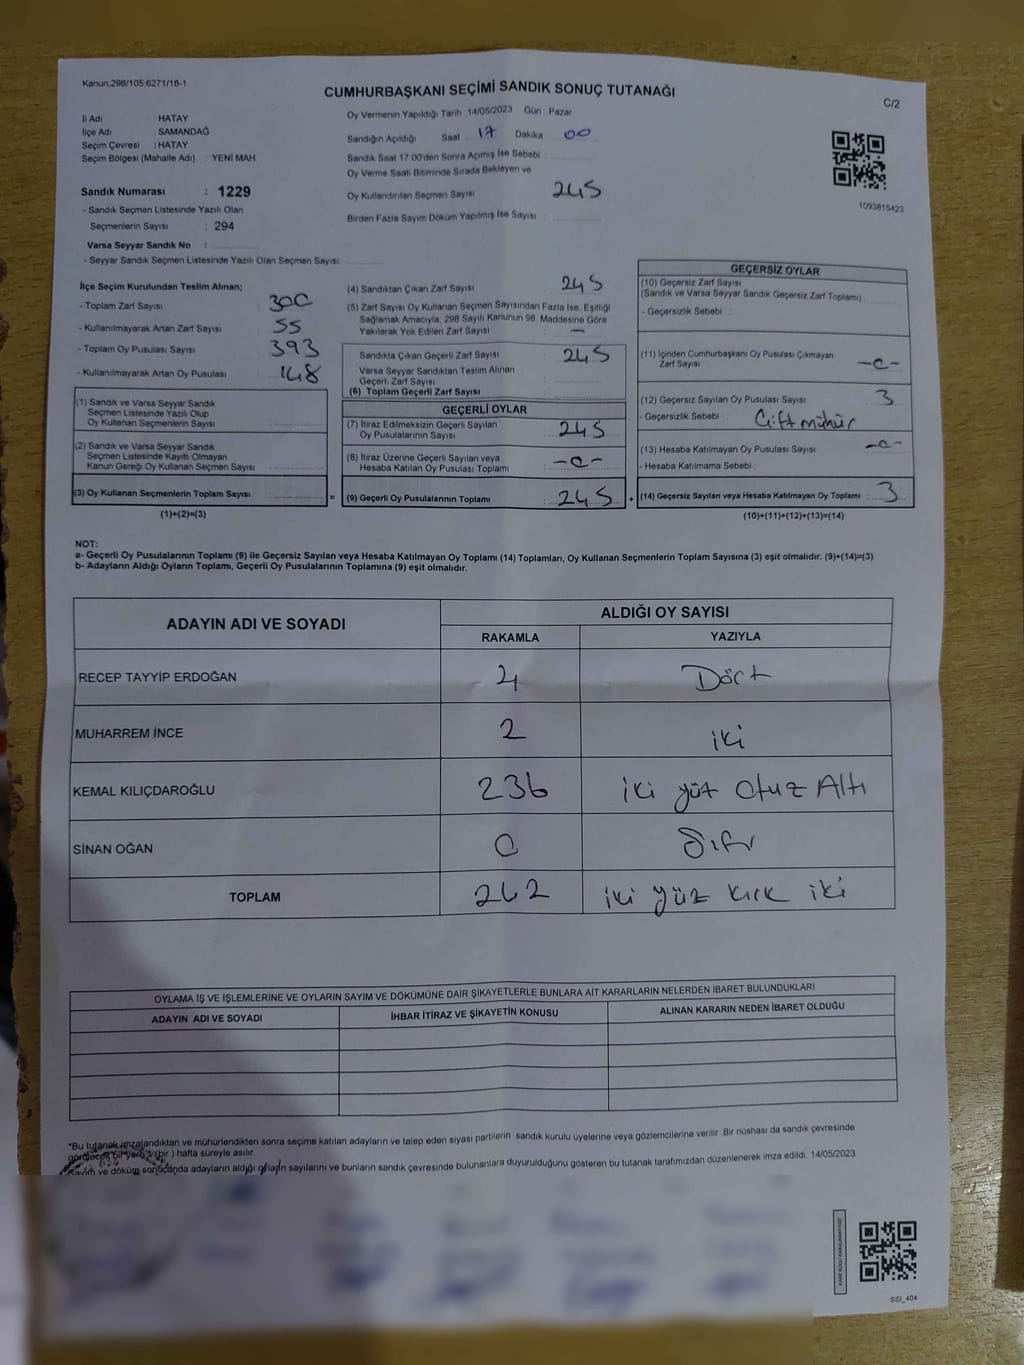 Kanun;298/105;6271/18-1
CUMHURBAŞKANI SEÇİMİ SANDIK SONUÇ TUTANAĞI
C/2
İl Adı : HATAY
İlçe Adı : SAMANDAĞ
Seçim Çevresi : HATAY
Seçim Bölgesi (Mahalle Adı) : YENİ MAH.
Sandık Numarası : 1229
- Sandık Seçmen Listesinde Yazılı Olan
Seçmenlerin Sayısı : 294
Varsa Seyyar Sandık No :
- Seyyar Sandık Seçmen Listesinde Yazılı Olan Seçmen Sayısı:
Oy Vermenin Yapıldığı Tarih 14/05/2023 Gün : Pazar
Sandığın Açıldığı Saat 17 Dakika 00
Sandık Saat 17:00'den Sonra Açımış İse Sebebi :
Oy Verme Saati Bitiminde Sırada Bekleyen ve
Oy Kullandırılan Seçmen Sayısı 245
Birden Fazla Sayım Döküm Yapılmış İse Sayısı
1093815423
İlçe Seçim Kurulundan Teslim Alınan;
- Toplam Zarf Sayısı : 300
- Kullanılmayarak Artan Zarf Sayısı : 55
- Toplam Oy Pusulası Sayısı : 393
- Kullanılmayarak Artan Oy Pusulası : 148
(1) Sandık ve Varsa Seyyar Sandık
Seçmen Listesinde Yazılı Olup
Oy Kullanan Seçmenlerin Sayısı :
(2) Sandık ve Varsa Seyyar Sandık
Seçmen Listesinde Kayıtlı Olmayan
Kanun Gereği Oy Kullanan Seçmen Sayısı :
(3) Oy Kullanan Seçmenlerin Toplam Sayısı :
(1)+(2)=(3)
(4) Sandıktan Çıkan Zarf Sayısı : 245
(5) Zarf Sayısı Oy Kullanan Seçmen Sayısından Fazla İse, Eşitliği
Sağlamak Amacıyla; 298 Sayılı Kanunun 98. Maddesine Göre
Yakılarak Yok Edilen Zarf Sayısı : —
Sandıkta Çıkan Geçerli Zarf Sayısı : 245
Varsa Seyyar Sandıktan Teslim Alınan
Geçerli Zarf Sayısı :
(6) Toplam Geçerli Zarf Sayısı :
GEÇERLİ OYLAR
(7) İtiraz Edilmeksizin Geçerli Sayılan
Oy Pusulalarının Sayısı : 245
(8) İtiraz Üzerine Geçerli Sayılan veya
Hesaba Katılan Oy Pusulası Toplamı : -0-
= (9) Geçerli Oy Pusulalarının Toplamı : 245 +
GEÇERSİZ OYLAR
(10) Geçersiz Zarf Sayısı
(Sandık ve Varsa Seyyar Sandık Geçersiz Zarf Toplamı) :
- Geçersizlik Sebebi :
(11) İçinden Cumhurbaşkanı Oy Pusulası Çıkmayan
Zarf Sayısı : -0-
(12) Geçersiz Sayılan Oy Pusulası Sayısı : 3
- Geçersizlik Sebebi : Çift mühür
(13) Hesaba Katılmayan Oy Pusulası Sayısı : -0-
- Hesaba Katılmama Sebebi :
(14) Geçersiz Sayılan veya Hesaba Katılmayan Oy Toplamı : 3
(10)+(11)+(12)+(13)=(14)
NOT:
a- Geçerli Oy Pusulalarının Toplamı (9) ile Geçersiz Sayılan veya Hesaba Katılmayan Oy Toplamı (14) Toplamları, Oy Kullanan Seçmenlerin Toplam Sayısına (3) eşit olmalıdır. (9)+(14)=(3)
b- Adayların Aldığı Oyların Toplamı, Geçerli Oy Pusulalarının Toplamına (9) eşit olmalıdır.
ADAYIN ADI VE SOYADI
ALDIĞI OY SAYISI
RAKAMLA YAZIYLA
RECEP TAYYİP ERDOĞAN 4 Dört
MUHARREM İNCE 2 iki
KEMAL KILIÇDAROĞLU 236 iki yüz Otuz Altı
SİNAN OĞAN 0 Sıfır
TOPLAM 242 iki yüz kırk iki
OYLAMA İŞ VE İŞLEMLERİNE VE OYLARIN SAYIM VE DÖKÜMÜNE DAİR ŞİKAYETLERLE BUNLARA AİT KARARLARIN NELERDEN İBARET BULUNDUKLARI
ADAYIN ADI VE SOYADI İHBAR İTİRAZ VE ŞİKAYETİN KONUSU ALINAN KARARIN NEDEN İBARET OLDUĞU
*Bu tutanak imzalandıktan ve mühürlendikten sonra seçime katılan adayların ve talep eden siyasi partilerin sandık kurulu üyelerine veya gözlemcilerine verilir. Bir nüshası da sandık çevresinde
görülecek bir yere 1 (bir ) hafta süreyle asılır.
Sayım ve döküm sonucunda adayların aldığı oyların sayılarını ve bunların sandık çevresinde bulunanlara duyurulduğunu gösteren bu tutanak tarafımızdan düzenlenerek imza edildi. 14/05/2023
SSI_404